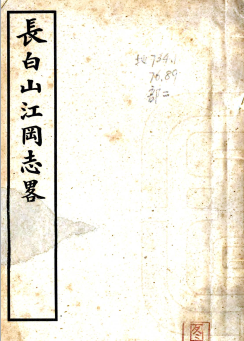 長白山江岡志畧
734.1
76.89
部二